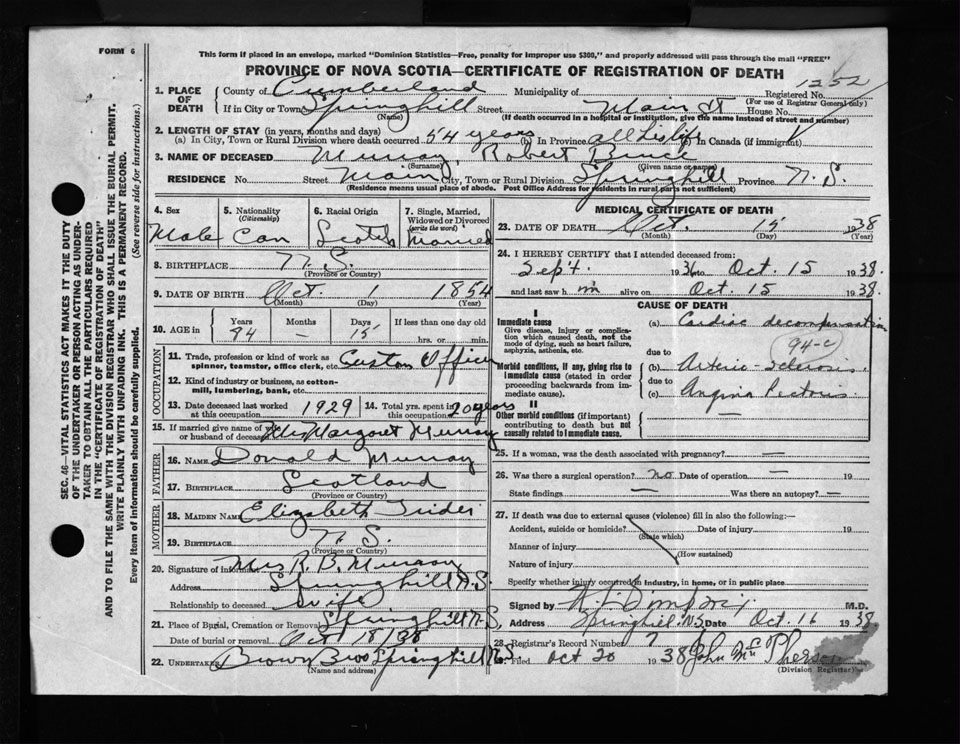 FORM 6
This form if placed in an envelope, marked "Dominion Statistics—Free, penalty for improper use $300," and properly addressed will pass through the mail "FREE"
PROVINCE OF NOVA SCOTIA—CERTIFICATE OF REGISTRATION OF DEATH
1. PLACE OF DEATH
County of Cumberland Municipality of Registered No. 1252
(For use of Registrar General only)
If in City or Town Springhill Street Main St House No.
(Name) (If death occurred in a hospital or institution, give the name instead of street and number)
2. LENGTH OF STAY (in years, months and days)
(a) In City, Town or Rural Division where death occurred 54 years (b) In Province all his life (c) In Canada (if immigrant)
3. NAME OF DECEASED Murray, Robert Bruce
(Surname) (Given name or names)
RESIDENCE No. Street Main City, Town or Rural Division Springhill Province N.S.
(Residence means usual place of abode. Post Office Address for residents in rural parts not sufficient)
4. Sex Male
5. Nationality (Citizenship) Can
6. Racial Origin Scotch
7. Single, Married, Widowed or Divorced (write the word) Married
8. BIRTHPLACE N.S.
(Province or Country)
9. DATE OF BIRTH Oct. 1 1854
(Month) (Day) (Year)
10. AGE in Years 84 Months — Days 15 If less than one day old hrs. or min.
OCCUPATION
11. Trade, profession or kind of work as spinner, teamster, office clerk, etc. Custom Officer
12. Kind of industry or business, as cotton-mill, lumbering, bank, etc.
13. Date deceased last worked at this occupation 1929
14. Total yrs. spent in this occupation 20 years
15. If married give name of wife or husband of deceased Mrs Margaret Murray
FATHER
16. NAME Donald Murray
17. BIRTHPLACE Scotland
(Province or Country)
MOTHER
18. MAIDEN NAME Elizabeth
19. BIRTHPLACE N.S.
(Province or Country)
20. Signature of informant Mrs R. B. Murray
Address Springhill N.S.
Relationship to deceased Wife
21. Place of Burial, Cremation or Removal Springhill N.S.
Date of burial or removal Oct 18/38
22. UNDERTAKER Brown Bros Springhill N.S.
(Name and address)
MEDICAL CERTIFICATE OF DEATH
23. DATE OF DEATH Oct. 15 1938
(Month) (Day) (Year)
24. I HEREBY CERTIFY that I attended deceased from:
Sept. 1936 to Oct. 15 1938.
and last saw him alive on Oct. 15 1938.
CAUSE OF DEATH
I
Immediate cause
Give disease, injury or complication which caused death, not the mode of dying, such as heart failure, asphyxia, asthenia, etc.
(a) Cardiac decompensation
94-c
due to
Morbid conditions, if any, giving rise to immediate cause (stated in order proceeding backwards from immediate cause).
(b) Arterio-sclerosis.
due to
(c) Angina Pectoris
II
Other morbid conditions (if important) contributing to death but not causally related to immediate cause.
25. If a woman, was the death associated with pregnancy? —
26. Was there a surgical operation? no Date of operation — 19
State findings — Was there an autopsy? —
27. If death was due to external causes (violence) fill in also the following:—
Accident, suicide or homicide? Date of injury 19
(State which)
Manner of injury
(How sustained)
Nature of injury
Specify whether injury occurred in industry, in home, or in public place
Signed by M.D.
Address Springhill. N.S. Date Oct. 16 1938
28. Registrar's Record Number 7
Filed Oct 20 1938 John McPherson
(Division Registrar)
SEC. 46—VITAL STATISTICS ACT MAKES IT THE DUTY
OF THE UNDERTAKER OR PERSON ACTING AS UNDER-
TAKER TO OBTAIN ALL THE PARTICULARS REQUIRED
IN THE "CERTIFICATE OF REGISTRATION OF DEATH"
AND TO FILE THE SAME WITH THE DIVISION REGISTRAR WHO SHALL ISSUE THE BURIAL PERMIT.
WRITE PLAINLY WITH UNFADING INK. THIS IS A PERMANENT RECORD.
Every item of information should be carefully supplied. (See reverse side for instructions.)